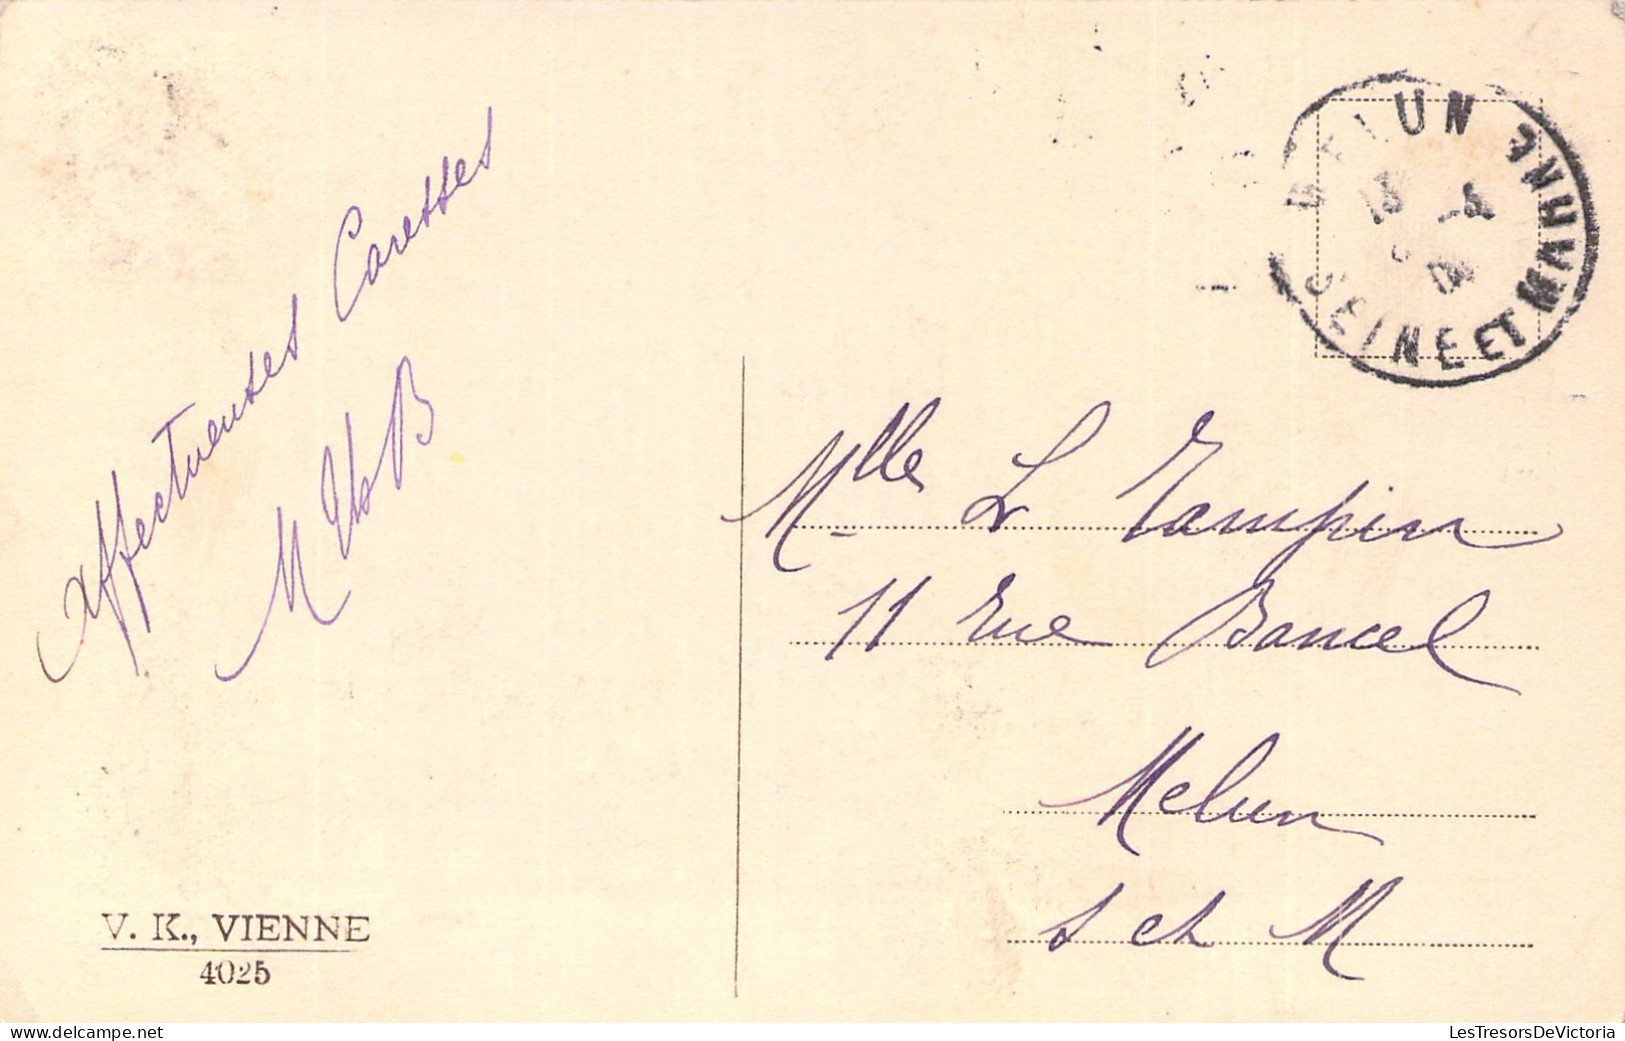 Affectueuses Caresses
M B
MELUN
SEINE ET MARNE
13
Mlle L Tampin
11 rue Bancel
Melun
S et M
V. K., VIENNE
4025
http://www.delcampe.net
LesTresorsDeVictoria